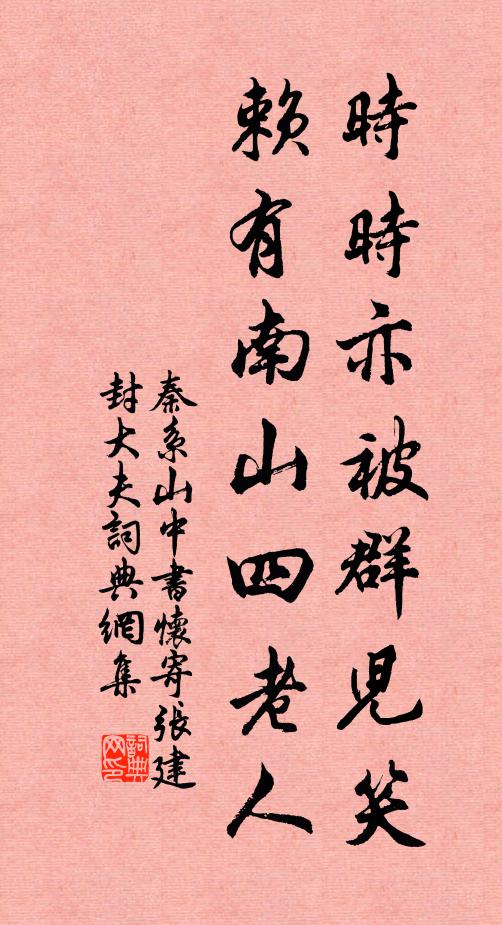 時時亦被群兒笑
賴有南山四老人
秦系山中書懷寄張建
封大夫詞典網集
詞典
网印